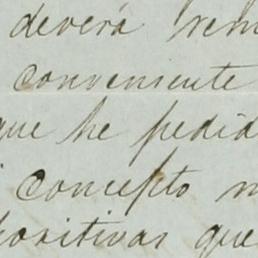 deverá rem
conveniente
que he pedid
concepto
positivas que